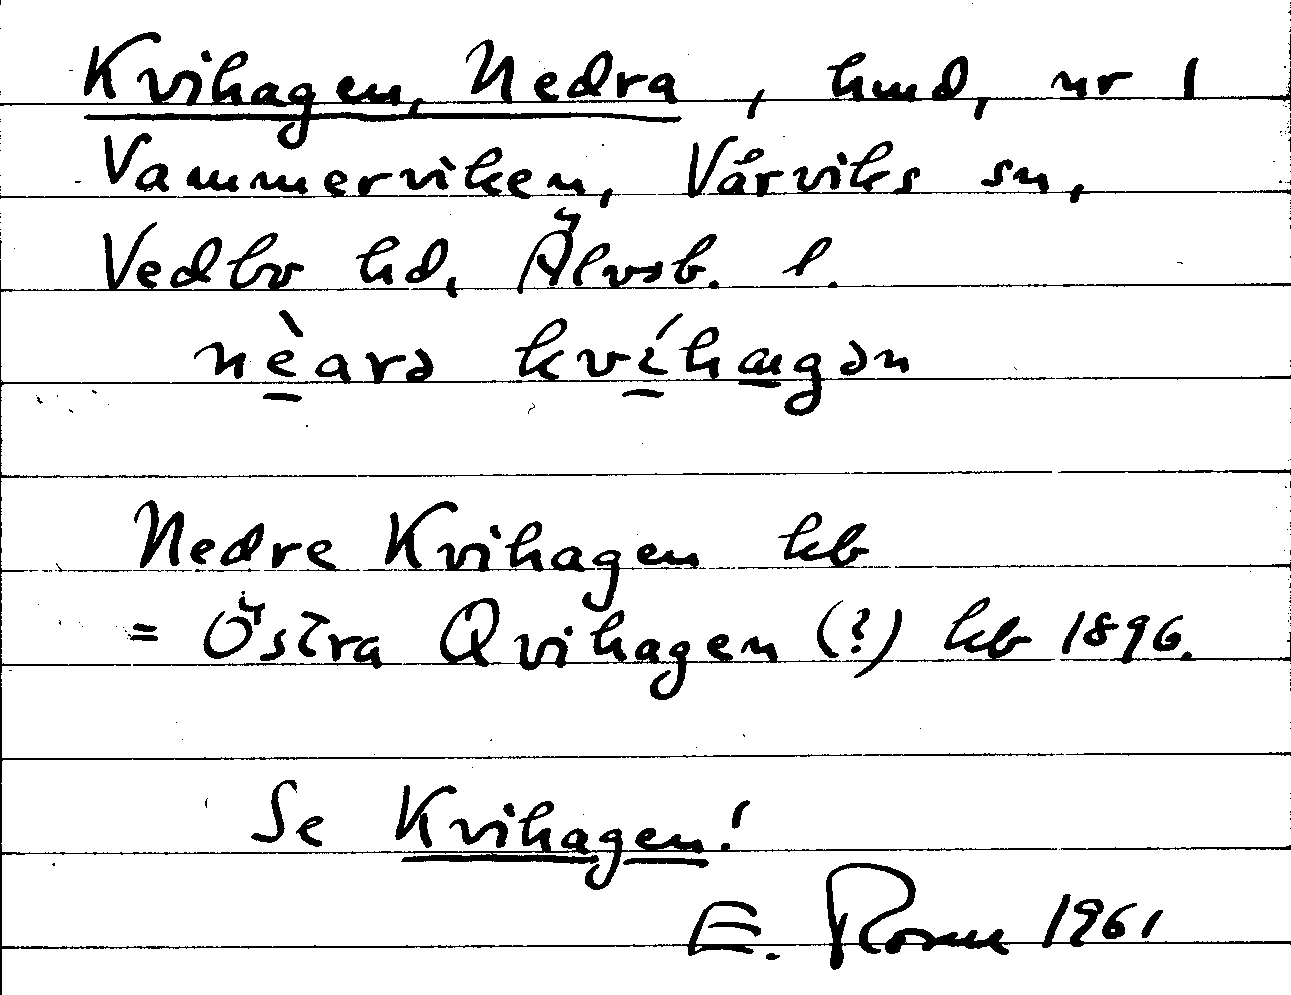 Kvihagen, Nedra, hmd, nr 1
Vammerviken, Vårviks sn,
Vedbo hd, Älvsb. l.
nè̱arə kví̱ha̱gən
Nedre Kvihagen kb
= Östra Qvihagen (?) kb 1896.
Se Kvihagen!
E. 1961